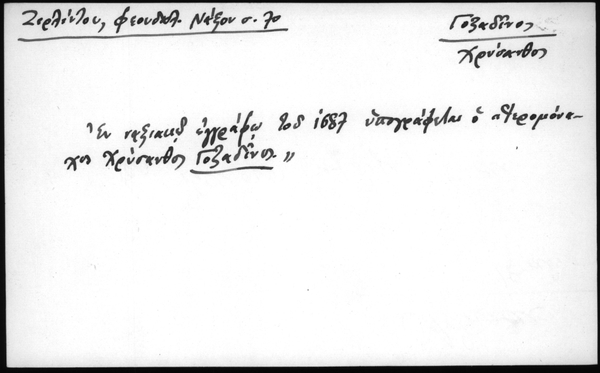 Ζερλέντου, φεουδαλ. Νάξου σ. 70
Γοζαδῖνος
Χρύσανθος
Ἐν ναξιακῷ ἐγγράφῳ τοῦ 1687 ὑπογράφεται ὁ "ἱερομόνα-
χος Χρύσανθος Γοζαδῖνος"